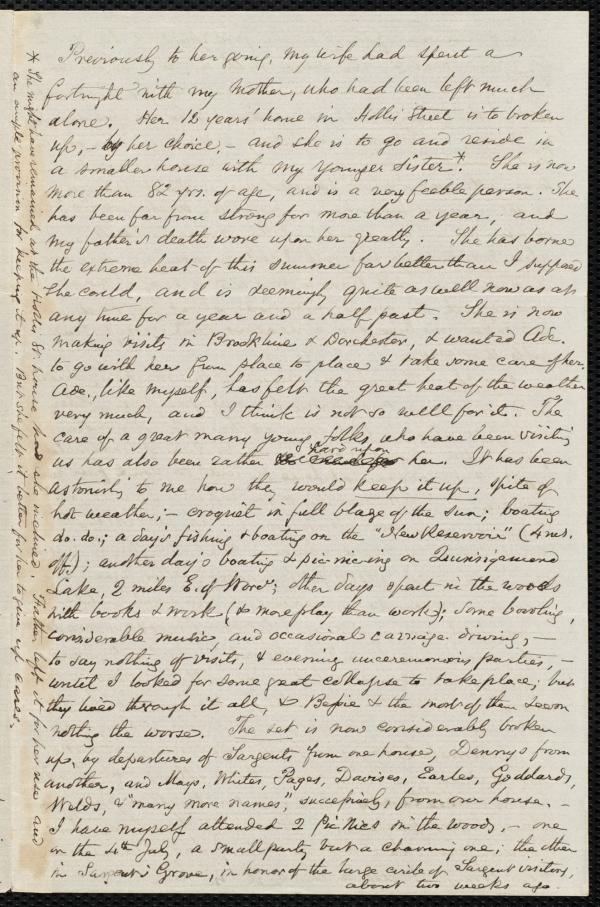 Previously to her going, my wife had spent a
fortnight with my Mother, who had been left much
alone. Her 12 years' home in Hollis Street is to broken
up, - by her choice, - and she is to go and reside in
a smaller house with my younger sister*. She is now
more than 82 yrs. of age, and is a very feeble person. She
has been far from strong for more than a year, and
my father's death wore upon her greatly. She has borne
the extreme heat of this summer far better than I supposed
she could, and is seemingly quite as well now as at
any time for a year and a half past. She is now
making visits in Brookline & Dorchester, & wanted Ade.
to go with her from place to place & take some care of her.
Ade., like myself, has felt the great heat of the weather
very much, and I think is not so well for it. The
care of a great many young folks, who have been visiting
us has also been rather hard upon her. It has been
astonishg to me how they would keep it up, spite of
hot weather; - croquet in full blaze of the sun; boating
do. do.; a day's fishing & boating on the "New Reservoir" (4 ms.
off.); another day's boating & pic-nicing on Quinsigamond
Lake, 2 miles E. of Worc; other days spent in the woods
with books & work (& more play than work); some bowling,
considerable music, and occasional carriage driving, -
to say nothing of visits, & evening unceremonious parties, -
until I looked for some great collapse to take place; but
they lived through it all, & Bessie & the most of them seem
nothing the worse. The set is now considerably broken
up, by departures of Sargents from one house, Dennys from
another, and Mays, Whites, Pages, Davises, Earles, Goddards,
Welds, & "many more names", successively, from our house. -
I have myself attended 2 Pic Nics in the woods, - one
on the 4th July, a small party but a charming one; the other
in Sargent's Grove, in honor of the large circle of Sargent visitors,
about two weeks ago.
* She might have remained at the Hollis St. house had she inclined. Father left it for her use and
an ample provision for keeping it up. But she felt it better for her to give up cares.